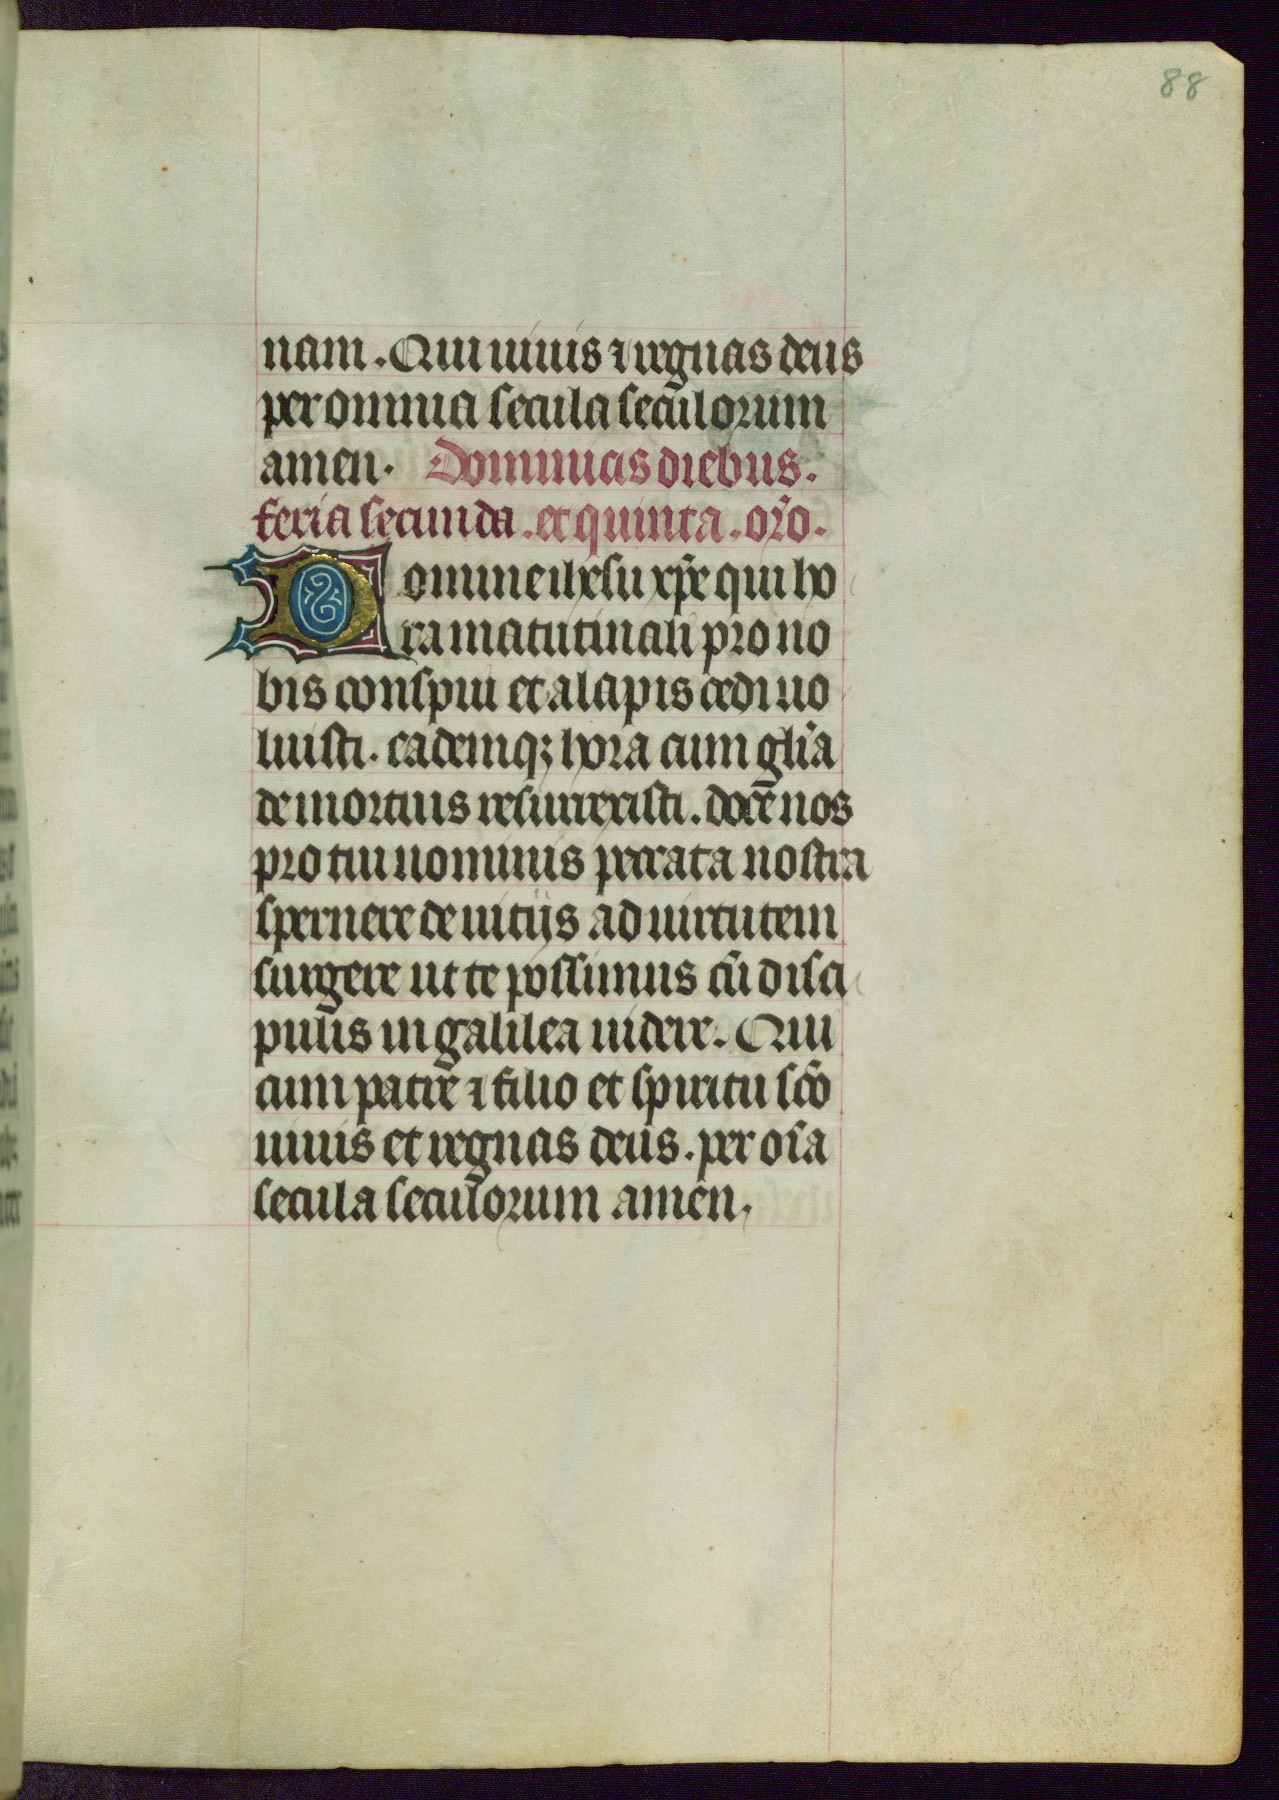 88
nam. Qui uiuis ⁊ regnas deus
per omnia secula seculorum
amen. Dominicis diebus.
feria secunda. et quinta. or̄o.
Domine ihesu xp̄e qui ho
ra matutinali pro no
bis conspui et alapis cedi uo
luisti. eademqꝫ hora cum gl̄ia
de mortuis resurrexisti. docē nos
pro tui nominis peccata nostra
spernere de uitijs ad uirtutem
surgere ut te possimus cū disci
pulis in galilea uidere. Qui
cum patre ⁊ filio et spiritu sc̄o
uiuis et regnas deus. per oīa
secula seculorum amen.